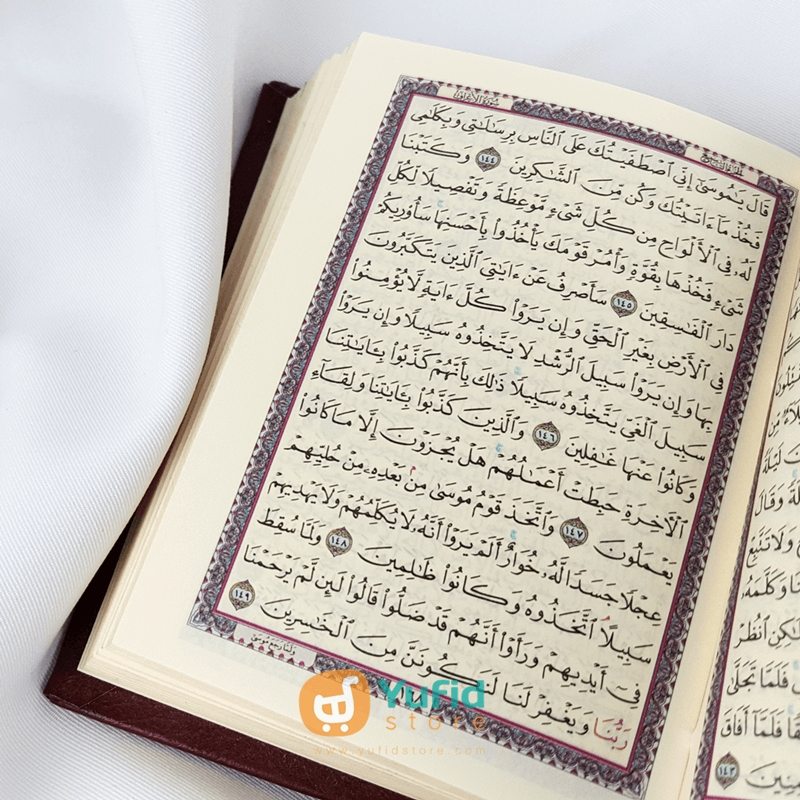 سُورَةُ الأَعْرَافِ
الجُزْءُ التَّاسِعُ
قَالَ يَٰمُوسَىٰٓ إِنِّي ٱصۡطَفَيۡتُكَ عَلَى ٱلنَّاسِ بِرِسَٰلَٰتِي وَبِكَلَٰمِي
فَخُذۡ مَآ ءَاتَيۡتُكَ وَكُن مِّنَ ٱلشَّٰكِرِينَ ١٤٤ وَكَتَبۡنَا
لَهُۥ فِي ٱلۡأَلۡوَاحِ مِن كُلِّ شَيۡءٖ مَّوۡعِظَةٗ وَتَفۡصِيلٗا لِّكُلِّ
شَيۡءٖ فَخُذۡهَا بِقُوَّةٖ وَأۡمُرۡ قَوۡمَكَ يَأۡخُذُواْ بِأَحۡسَنِهَاۚ سَأُوْرِيكُمۡ
دَارَ ٱلۡفَٰسِقِينَ ١٤٥ سَأَصۡرِفُ عَنۡ ءَايَٰتِيَ ٱلَّذِينَ يَتَكَبَّرُونَ
فِي ٱلۡأَرۡضِ بِغَيۡرِ ٱلۡحَقِّ وَإِن يَرَوۡاْ كُلَّ ءَايَةٖ لَّا يُؤۡمِنُواْ
بِهَا وَإِن يَرَوۡاْ سَبِيلَ ٱلرُّشۡدِ لَا يَتَّخِذُوهُ سَبِيلٗا وَإِن يَرَوۡاْ
سَبِيلَ ٱلۡغَيِّ يَتَّخِذُوهُ سَبِيلٗاۚ ذَٰلِكَ بِأَنَّهُمۡ كَذَّبُواْ بِـَٔايَٰتِنَا
وَكَانُواْ عَنۡهَا غَٰفِلِينَ ١٤٦ وَٱلَّذِينَ كَذَّبُواْ بِـَٔايَٰتِنَا وَلِقَآءِ
ٱلۡأٓخِرَةِ حَبِطَتۡ أَعۡمَٰلُهُمۡۚ هَلۡ يُجۡزَوۡنَ إِلَّا مَا كَانُواْ
يَعۡمَلُونَ ١٤٧ وَٱتَّخَذَ قَوۡمُ مُوسَىٰ مِنۢ بَعۡدِهِۦ مِنۡ حُلِيِّهِمۡ
عِجۡلٗا جَسَدٗا لَّهُۥ خُوَارٌۚ أَلَمۡ يَرَوۡاْ أَنَّهُۥ لَا يُكَلِّمُهُمۡ وَلَا يَهۡدِيهِمۡ
سَبِيلًاۘ ٱتَّخَذُوهُ وَكَانُواْ ظَٰلِمِينَ ١٤٨ وَلَمَّا سُقِطَ
فِيٓ أَيۡدِيهِمۡ وَرَأَوۡاْ أَنَّهُمۡ قَدۡ ضَلُّواْ قَالُواْ لَئِن لَّمۡ يَرۡحَمۡنَا
رَبُّنَا وَيَغۡفِرۡ لَنَا لَنَكُونَنَّ مِنَ ٱلۡخَٰسِرِينَ ١٤٩
وَلَمَّا رَجَعَ مُوسَىٰٓ
لَيۡلَةٗ
وَقَالَ
وَلَا تَتَّبِعۡ
وَكَلَّمَهُۥ
ٱنظُرۡ
فَلَمَّا تَجَلَّىٰ
فَلَمَّآ أَفَاقَ
١٤٣
Yufid
store
www.yufidstore.com